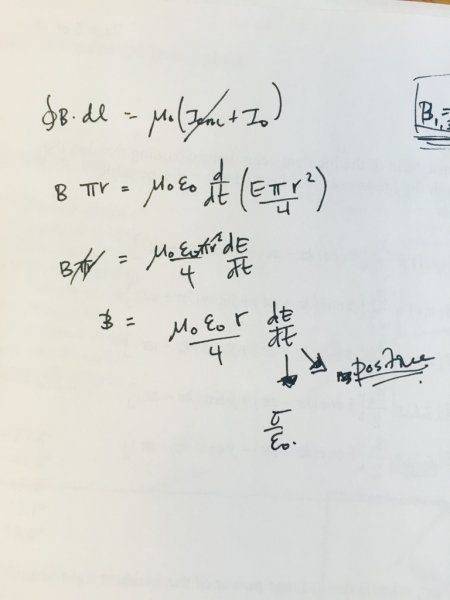 ∮B·dl = μ₀(I̶e̶n̶c̶ + I₀)
B₁,
B πr = μ₀ε₀ d/dt (Eπr²/4)
Bπ̶r̶ = μ₀ε₀π̶r²/4 dE/dt
B = μ₀ε₀r/4 dE/dt
positive
σ/ε₀.